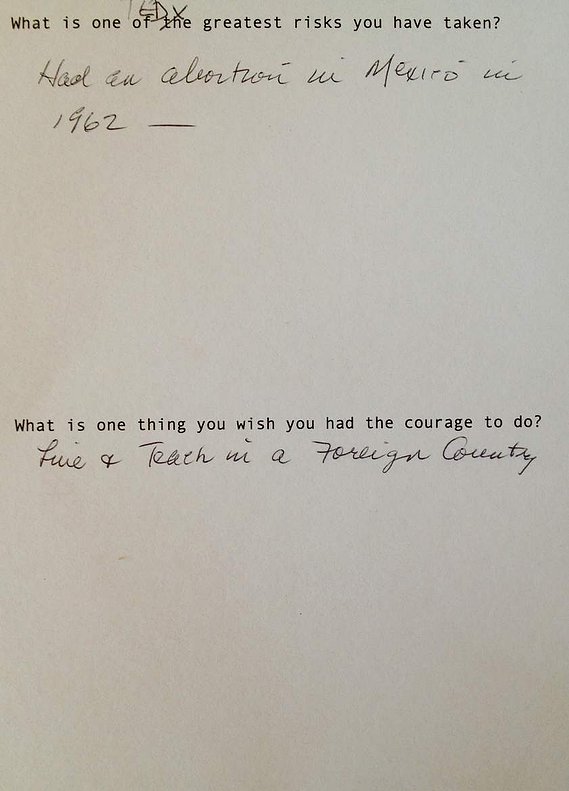 TEDX
What is one of the greatest risks you have taken?
Had an abortion in Mexico in
1962 —
What is one thing you wish you had the courage to do?
Live & Teach in a Foreign Country